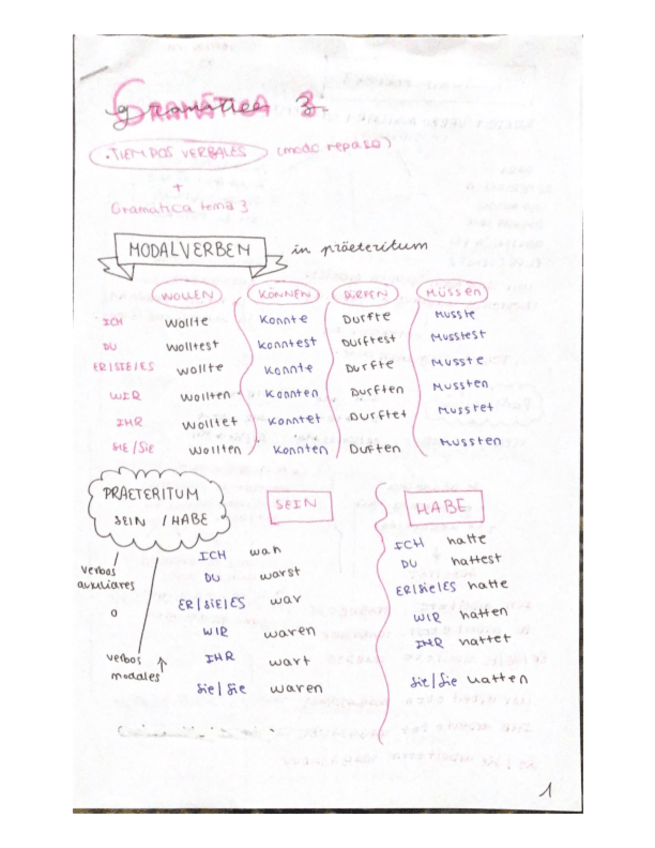 Gramática 3.
. TIEMPOS VERBALES (modo repaso)
+
Gramática tema 3
MODALVERBEN in präeteritum
WOLLEN KÖNNEN DÜRFEN MÜSSEN
ICH wollte Konnte Durfte Musste
DU wolltest Konntest Durftest Musstest
ER/SIE/ES wollte Konnte Durfte Musste
WIR wollten Konnten Durften Mussten
IHR wolltet Konntet Durftet Musstet
SIE/Sie wollten Konnten Duften Mussten
PRAETERITUM
SEIN / HABE
SEIN
HABE
verbos
auxiliares
o
verbos
modales
ICH wah
DU warst
ER/SIE/ES war
WIR waren
IHR wart
Sie/Sie waren
ICH hatte
DU hattest
ER/Sie/ES hatte
WIR hatten
IHR hattet
Sie/Sie hatten
1